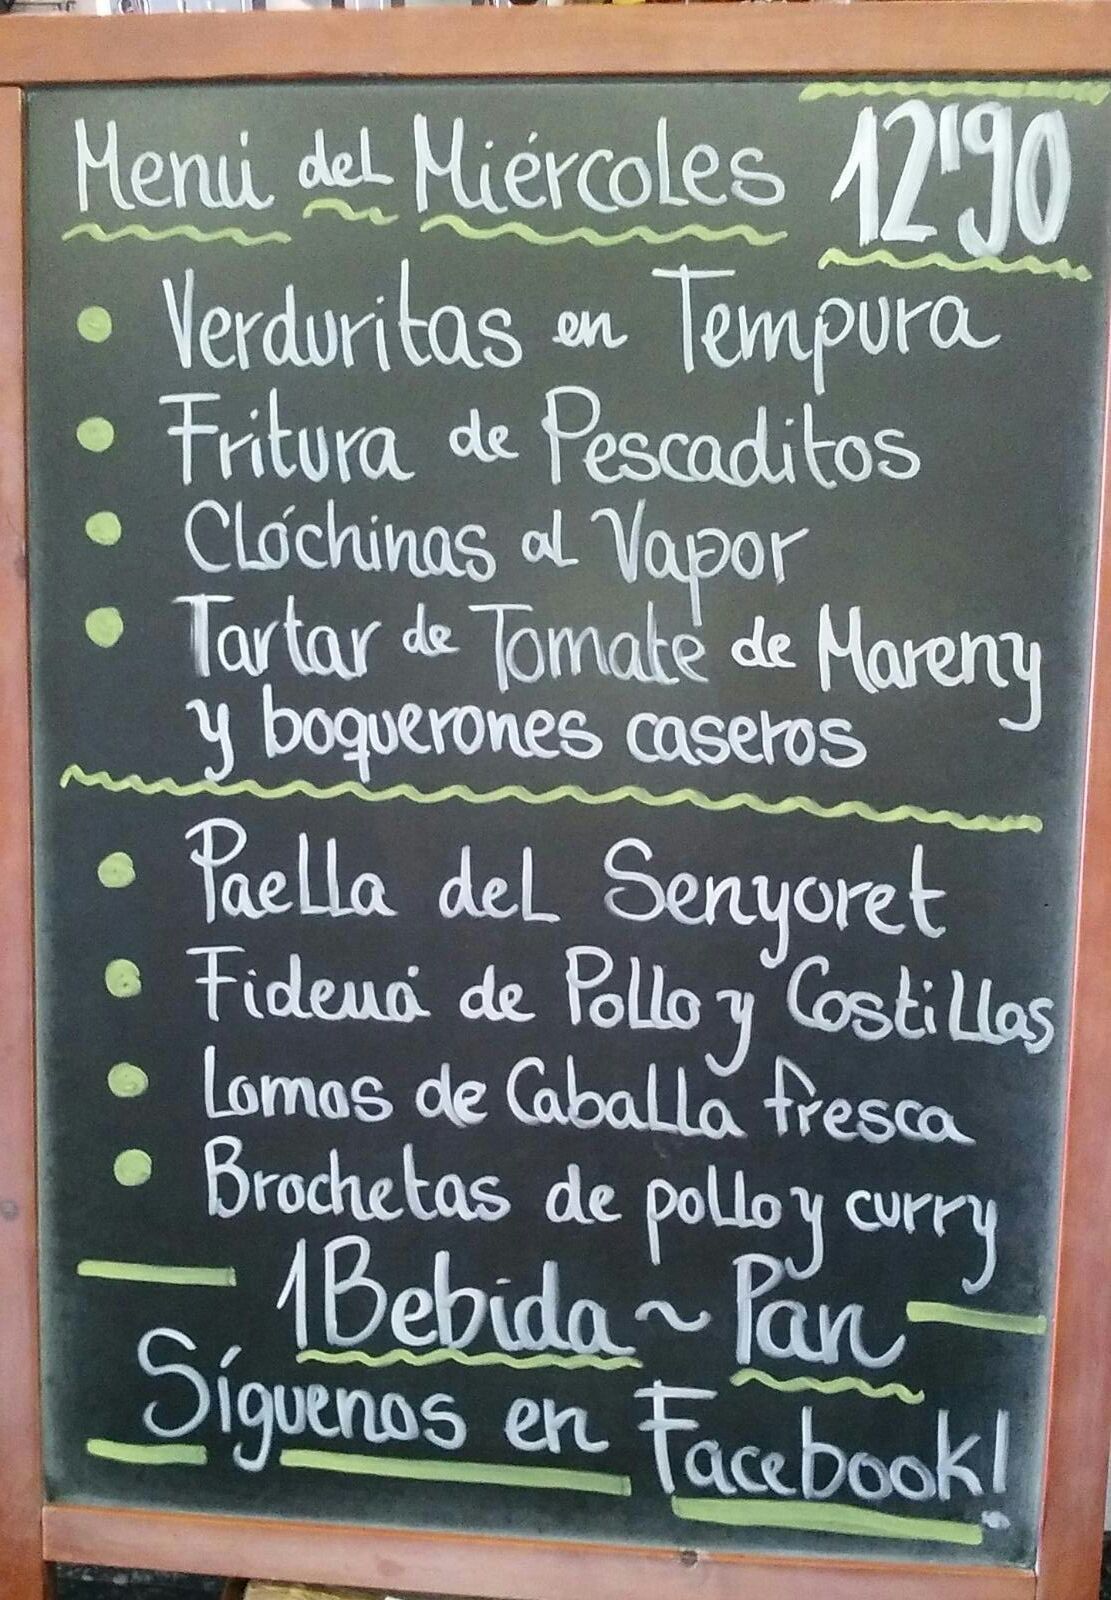 Menú del Miércoles 12'90
Verduritas en Tempura
Fritura de Pescaditos
Clóchinas al Vapor
Tartar de Tomate de Mareny
y boquerones caseros
Paella del Senyoret
Fideuá de Pollo y Costillas
Lomos de Caballa fresca
Brochetas de pollo y curry
1 Bebida ~ Pan
Síguenos en Facebook!